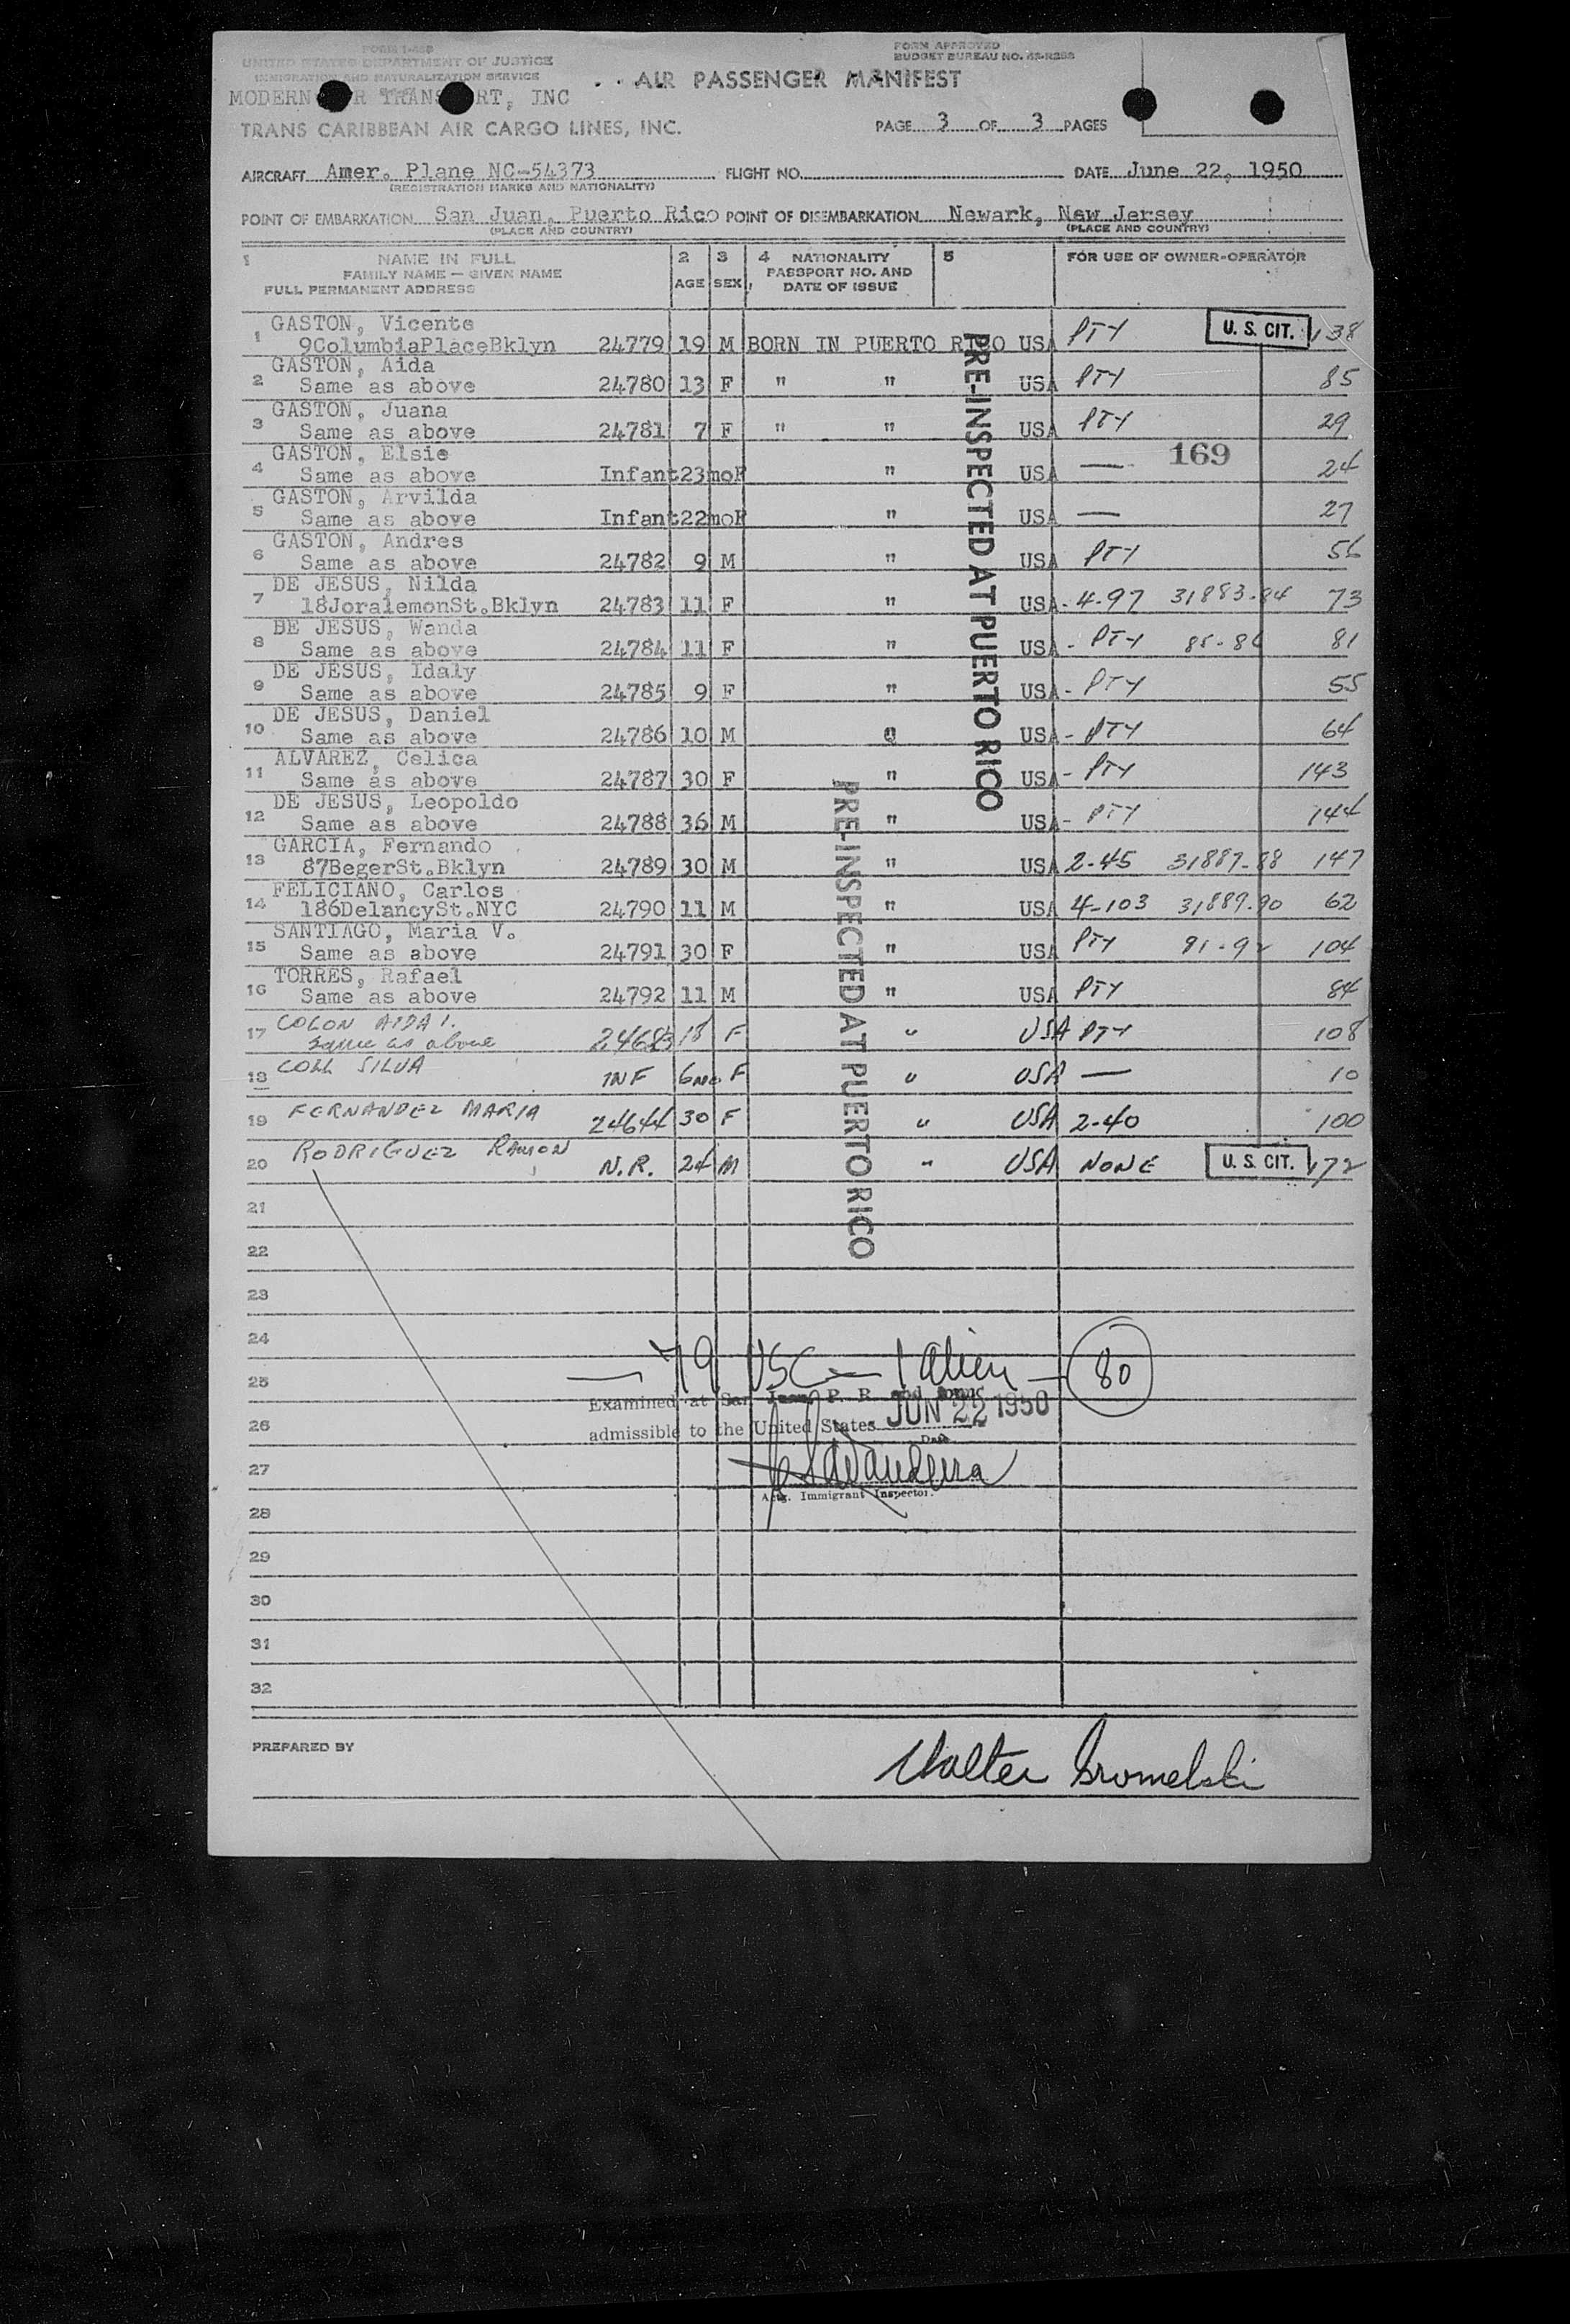 FORM I-466
UNITED STATES DEPARTMENT OF JUSTICE
IMMIGRATION AND NATURALIZATION SERVICE
FORM APPROVED
BUDGET BUREAU NO. 43-R258
AIR PASSENGER MANIFEST
MODERN R TRANS RT, INC
TRANS CARIBBEAN AIR CARGO LINES, INC.
PAGE 3 OF 3 PAGES
AIRCRAFT Amer. Plane NC-54373 FLIGHT NO. DATE June 22, 1950
(REGISTRATION MARKS AND NATIONALITY)
POINT OF EMBARKATION San Juan, Puerto Rico POINT OF DISEMBARKATION Newark, New Jersey
(PLACE AND COUNTRY) (PLACE AND COUNTRY)
1 NAME IN FULL 2 3 4 NATIONALITY 5 FOR USE OF OWNER-OPERATOR
FAMILY NAME — GIVEN NAME AGE SEX PASSPORT NO. AND
FULL PERMANENT ADDRESS DATE OF ISSUE
1 GASTON, Vicente U. S. CIT.
9ColumbiaPlaceBklyn 24779 19 M BORN IN PUERTO RICO USA PTY 138
2 GASTON, Aida
Same as above 24780 13 F " " USA PTY 85
3 GASTON, Juana
Same as above 24781 7 F " " USA PTY 29
169
4 GASTON, Elsie
Same as above Infant 23moF " USA — 24
5 GASTON, Arvilda
Same as above Infant 22moF " USA — 27
6 GASTON, Andres
Same as above 24782 9 M " USA PTY 56
7 DE JESUS, Nilda
18JoralemonSt.Bklyn 24783 11 F " USA - 4-97 31883-84 73
8 DE JESUS, Wanda
Same as above 24784 11 F " USA - PTY 85-86 81
9 DE JESUS, Idaly
Same as above 24785 9 F " USA - PTY 55
10 DE JESUS, Daniel
Same as above 24786 10 M " USA - PTY 64
11 ALVAREZ, Celica
Same as above 24787 30 F " USA - PTY 143
12 DE JESUS, Leopoldo
Same as above 24788 36 M " USA - PTY 144
13 GARCIA, Fernando
87BegerSt.Bklyn 24789 30 M " USA 2-45 31887-88 147
14 FELICIANO, Carlos
186DelancySt.NYC 24790 11 M " USA 4-103 31889-90 62
15 SANTIAGO, Maria V.
Same as above 24791 30 F " USA PTY 91-92 104
16 TORRES, Rafael
Same as above 24792 11 M " USA PTY 84
17 COLON AIDA I.
Same as above 24683 18 F " USA PTY 108
18 COLL SILVA INF 6mo F " USA — 10
19 FERNANDEZ MARIA 24644 30 F " USA 2-40 100
20 RODRIGUEZ RAMON N.R. 24 M " USA NONE U. S. CIT. 172
PRE-INSPECTED AT PUERTO RICO
PRE-INSPECTED AT PUERTO RICO
21
22
23
24
25 — 79 USC — 1 alien — 80
Examined at San Juan, P. R. and found
26 admissible to the United States JUN 22 1950
Date
27
Actg. Immigrant Inspector.
28
29
30
31
32
PREPARED BY Walter Gromelski